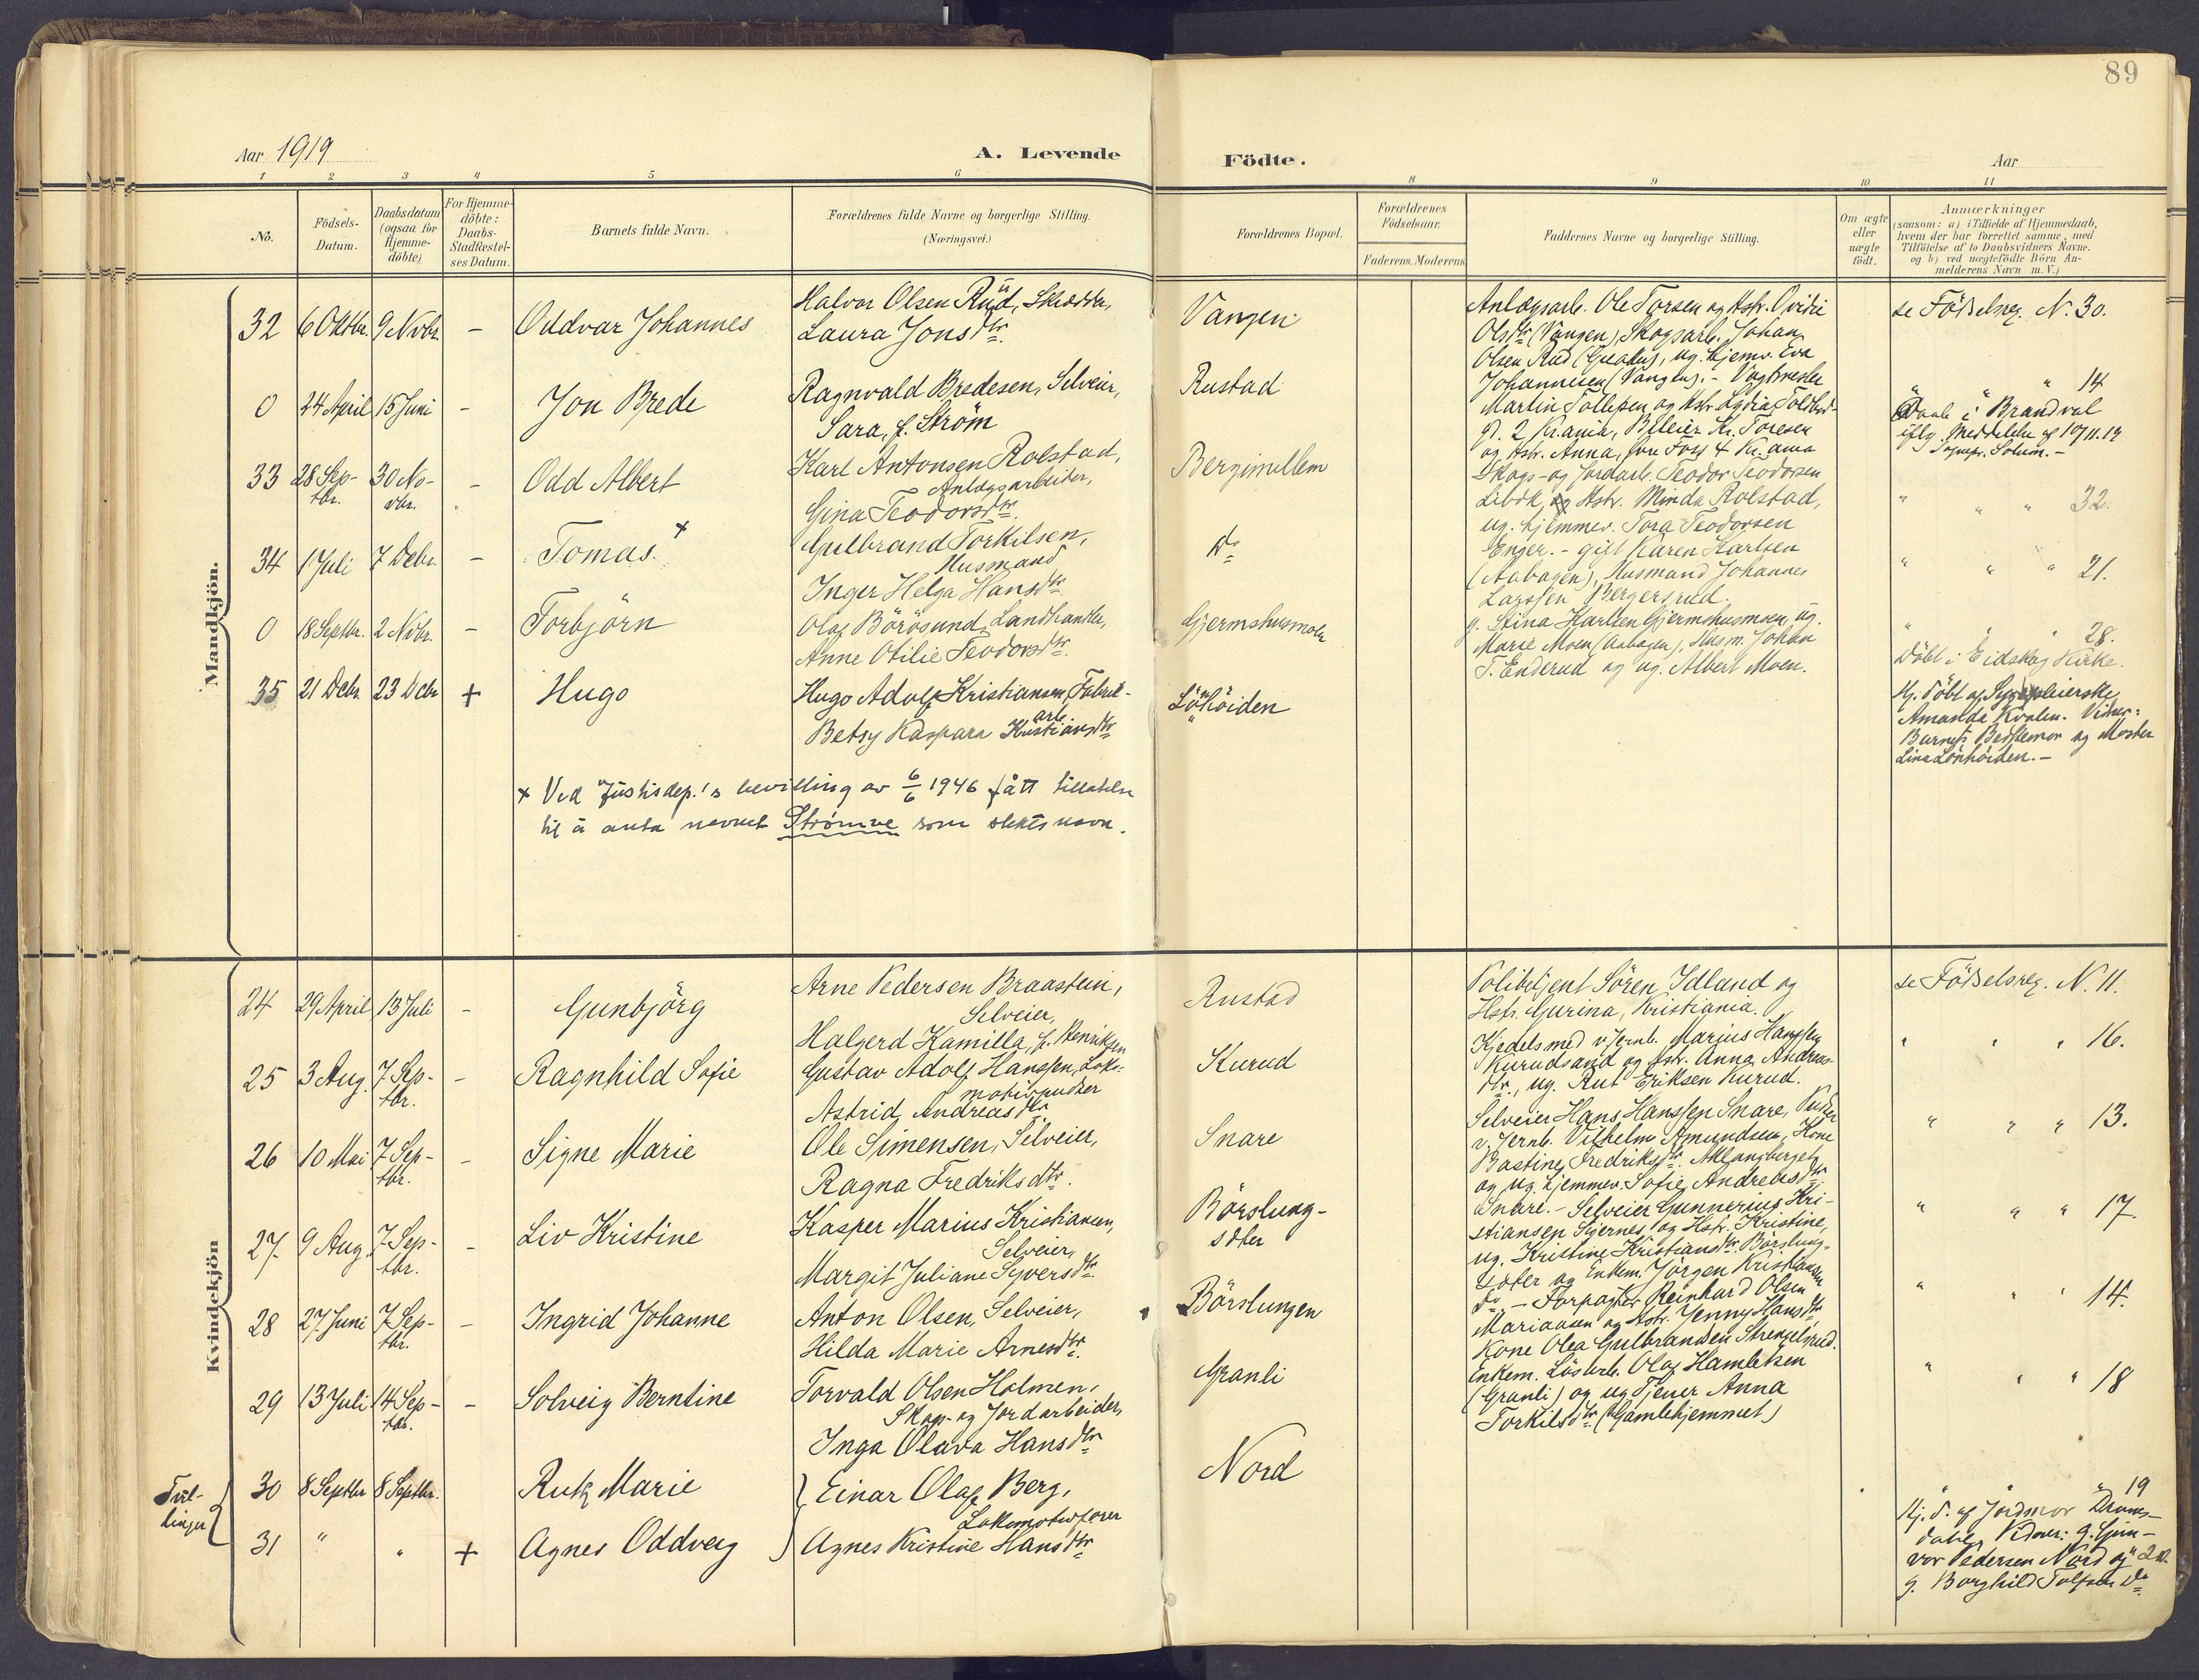 89
Aar 1919
A. Levende
Födte.
Aar
1 2 3 4 5 6 8 9 10 11
No.
Födsels-Datum.
Daabsdatum (ogsaa for Hjemme-döbte)
For Hjemme-döbte: Daabs-Stadfæstel-ses Datum.
Barnets fulde Navn.
Forældrenes fulde Navne og borgerlige Stilling.
(Næringsvei.)
Forældrenes Bopæl.
Forældrenes Födselsaar.
Faderens. Moderens.
Faddernes Navne og borgerlige Stilling.
Om ægte eller uægte födt.
Anmærkninger
(saasom: a) i Tilfælde af Hjemmedaab,
hvem der har forrettet samme, med
Tilföielse af to Daabsvidners Navne.
og b) ved uægtefödte Börn An-
melderens Navn m.V.)
Mandkjön.
32 6 Oktbr. 9 Nvbr. – Oddvar Johannes
Halvor Olsen Rud, Skrædder,
Laura Jonsdtr.
Vangen
Anlægsarb. Ole Torsen og Hstr. Ovidie
Olsdtr (Vangen), Skogsarb. Johan
Olsen Rud, ug. hjemv. Eva
Johannesen (Vangen). – Vagtmester
se Födselsreg. N. 30.
0 24 April 15 Juni – Jon Brede
Ragnvald Bredesen, Selveier,
Sara, f. Ström
Rustad
Martin Tollefsen og Hstr. Lydia
og Hstr. Anna, Kr.ania
" " " 14
Daab i Brandval
iflg. Meddelelse af 10/11.19
Sognepr. Solum. –
33 28 Sep-tbr. 30 No-vbr. – Odd Albert
Karl Antonsen Rolstad,
Anlægsarbeider,
Gina Teodorsdtr.
Bergimellem
Skogs- og Jordarb. Teodor Teodorsen
Libæk, og Hstr. Minda Rolstad,
ug. hjemmev. Tora Teodorsen
" " " 32.
34 1 Juli 7 Debr. – Tomas. x
Gulbrand Torkilsen,
Husmand
Inger Helga Hansdtr.
Do
Enger. – gift Karen Karlsen
(Aabogen), Husmand Johannes
Larssen Bergersrud.
" " " 21.
0 18 Septbr. 2 Nvbr. – Torbjörn
Olaf Börösund, Landhandler,
Anne Otilie Teodorsdtr.
Gjermshusmoen
g. Stina Karlsen Gjermshusmoen, ug.
Marie Moen (Aabogen), Husm. Johan
T. Enderud og ug. Albert Moen.
" " " 28.
Döbt i Eidskog Kirke.
35 21 Debr. 23 Debr + Hugo
Hugo Adolf Kristiansen, Fabrik-
arb.
Betsy Kaspara Kristiansdtr
Lönhöiden
Hj. döbt af Sygepleierske
Amanda Kvalen. Vidner:
Barnets Bestemor og Moster
Lina Lönhöiden. –
x Ved Justisdep.'s bevilling av 6/6 1946 fått tillatelse
til å anta navnet Strømve som slektsnavn.
Kvindekjön
24 29 April 13 Juli – Gunbjörg
Arne Pedersen Braastein,
Selveier,
Halgerd Kamilla, f. Henriksen
Rustad
Politibetjent Sören Idland og
Hstr. Gurina, Kristiania.
se Födselsreg. N. 11.
25 3 Aug. 7 Sep-tbr. – Ragnhild Sofie
Gustav Adolf Hanssen, Loko-
motivpudser
Astrid Andreasdtr
Kurud
Kjedelsmed v. Jernb. Marius Hanssen
Kurudsand og Hstr. Anna Andreas-
dtr., ug. Rut Eriksen Kurud.
" " " 16.
26 10 Mai 7 Sep-tbr. – Signe Marie
Ole Simensen, Selveier,
Ragna Fredriksdtr.
Snare
Selveier Hans Hanssen Snare, Pudser
v. Jernb. Vilhelm Amundsen, Kone
Bastine Fredriksdtr. Aklangberget
og ug. hjemmev. Sofie Andreasdtr
" " " 13.
27. 9 Aug. 7 Sep-tbr. – Liv Kristine
Kasper Marius Kristiansen,
Selveier,
Margit Juliane Syversdtr.
Börslung-
sæter
Snare. – Selveier Gunnerius Kri-
stiansen Stjernes og Hstr. Kristine,
ug. Kristine Kristiansdtr. Börslung-
sæter og Enkem. Jörgen Kristiansen
" " " 17.
28 27 Juni 7 Sep-tbr. – Ingrid Johanne
Anton Olsen, Selveier,
Hilda Marie Arnesdtr.
Börslungen
Do. – Forpagter Reinhard Olsen
Mariaasen og Hstr. Jenny Hansdtr,
Kone Olea Gulbrandsen Strengelsrud.
" " " 14.
29 13 Juli 14 Sep-tbr. – Solveig Berntine
Torvald Olsen Holmen,
Skogs- og Jordarbeider,
Inga Olava Hansdtr
Granli
Enkem. Lösarb. Olaf Hamletsen
(Granli) og ug. Tjener Anna
Torkilsdtr. (Gamlehjemmet)
" " " 18
Tvil-
linger
30 8 Septbr 8 Septbr. Rut Marie
31 " " + Agnes Oddveig
Einar Olaf Berg,
Lokomotivförer
Agnes Kristine Hansdtr
Nord
" " 19
Hj. d. af Jordmor
Vidner: g. Gun-
vor Pedersen Nord og
g. Borghild Tolfsen Do